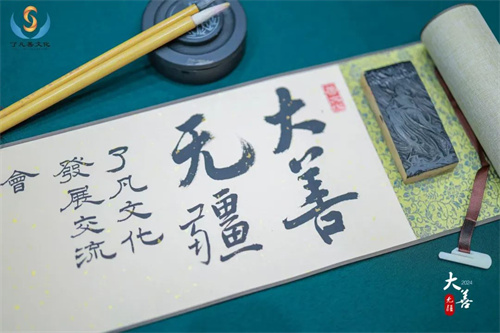 大善
无疆
了凡文化
發展交流
會
大善
2024
无疆